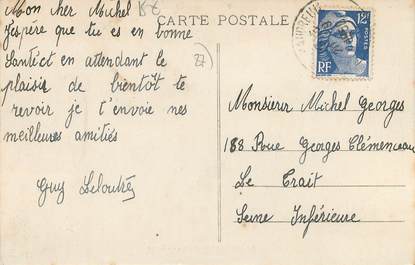 Mon cher Michel
CARTE POSTALE
J'espère que tu es en bonne
Santé et en attendant le
plaisir de bientôt te
revoir je t'envoie mes
meilleures amitiés
Guy
27
12F
POSTES
RF
Monsieur Michel Georges
188 Roue Georges Clémenceau
Le Trait
Seine Inférieure